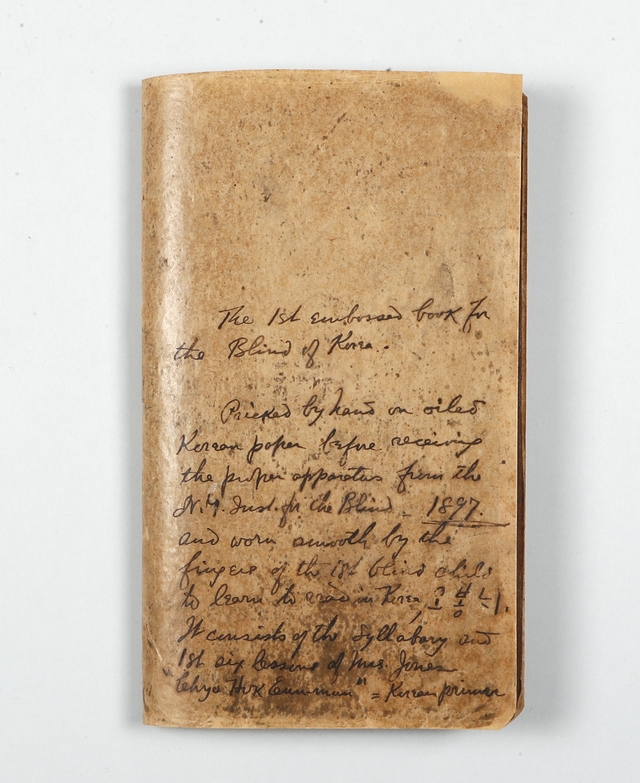 The 1st embossed book for
the Blind of Korea.
Pricked by hand on oiled
Korean paper before receiving
the proper apparatus from the
N.Y. Inst. for the Blind - 1897.
and worn smooth by the
fingers of the 1st blind child
to learn to read in Korea,
It consists of the Syllabary and
1st six lessons of Mrs. Jones
" = Korean primer